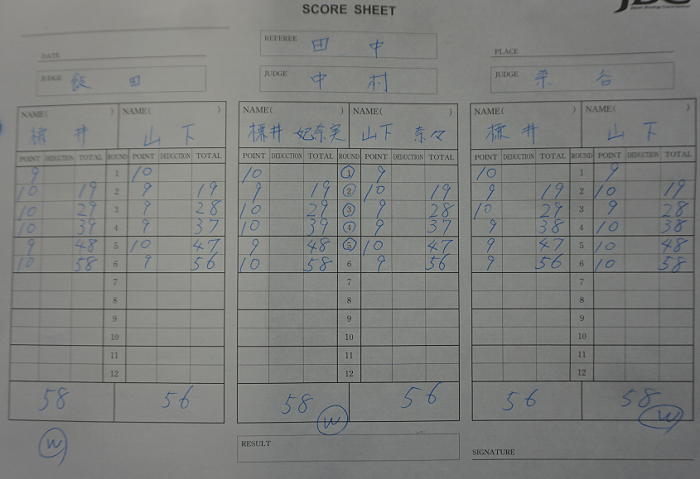 SCORE SHEET
REFEREE 田中
DATE
PLACE
JUDGE 飯田
JUDGE 中村
JUDGE
NAME( ) NAME( )
井 山下
POINT DEDUCTION TOTAL ROUND POINT DEDUCTION TOTAL
9 1 10
10 19 2 9 19
10 29 3 9 28
10 39 4 9 37
9 48 5 10 47
10 58 6 9 56
7
8
9
10
11
12
58 56
W
NAME( ) NAME( )
井 妃奈実 山下 奈々
POINT DEDUCTION TOTAL ROUND POINT DEDUCTION TOTAL
10 1 9
9 19 2 10 19
10 29 3 9 28
10 39 4 9 37
9 48 5 10 47
10 58 6 9 56
7
8
9
10
11
12
58 W 56
NAME( ) NAME( )
井 山下
POINT DEDUCTION TOTAL ROUND POINT DEDUCTION TOTAL
10 1 9
9 19 2 10 19
10 29 3 9 28
9 38 4 10 38
9 47 5 10 48
9 56 6 10 58
7
8
9
10
11
12
56 58 W
RESULT
SIGNATURE